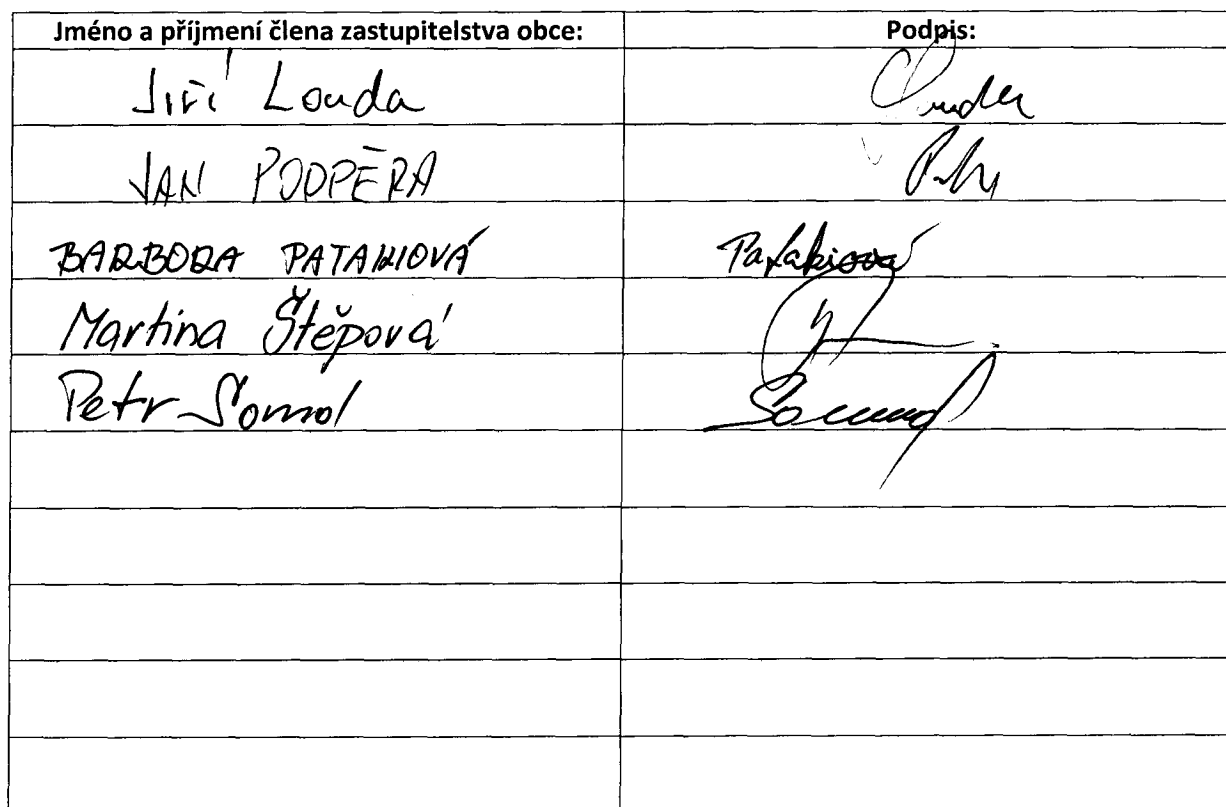 Jméno a příjmení člena zastupitelstva obce: Podpis:
Jiří Louda
JAN PODPĚRA
BARBORA PATAKIOVÁ Patakiová
Martina Štěpová
Petr Somol